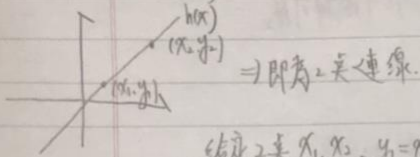 h(x)
(x₂, y₂)
(x₁, y₁)
⇒ 即為 2 点之連線.
2 点 x₁ x₂, y₁ =